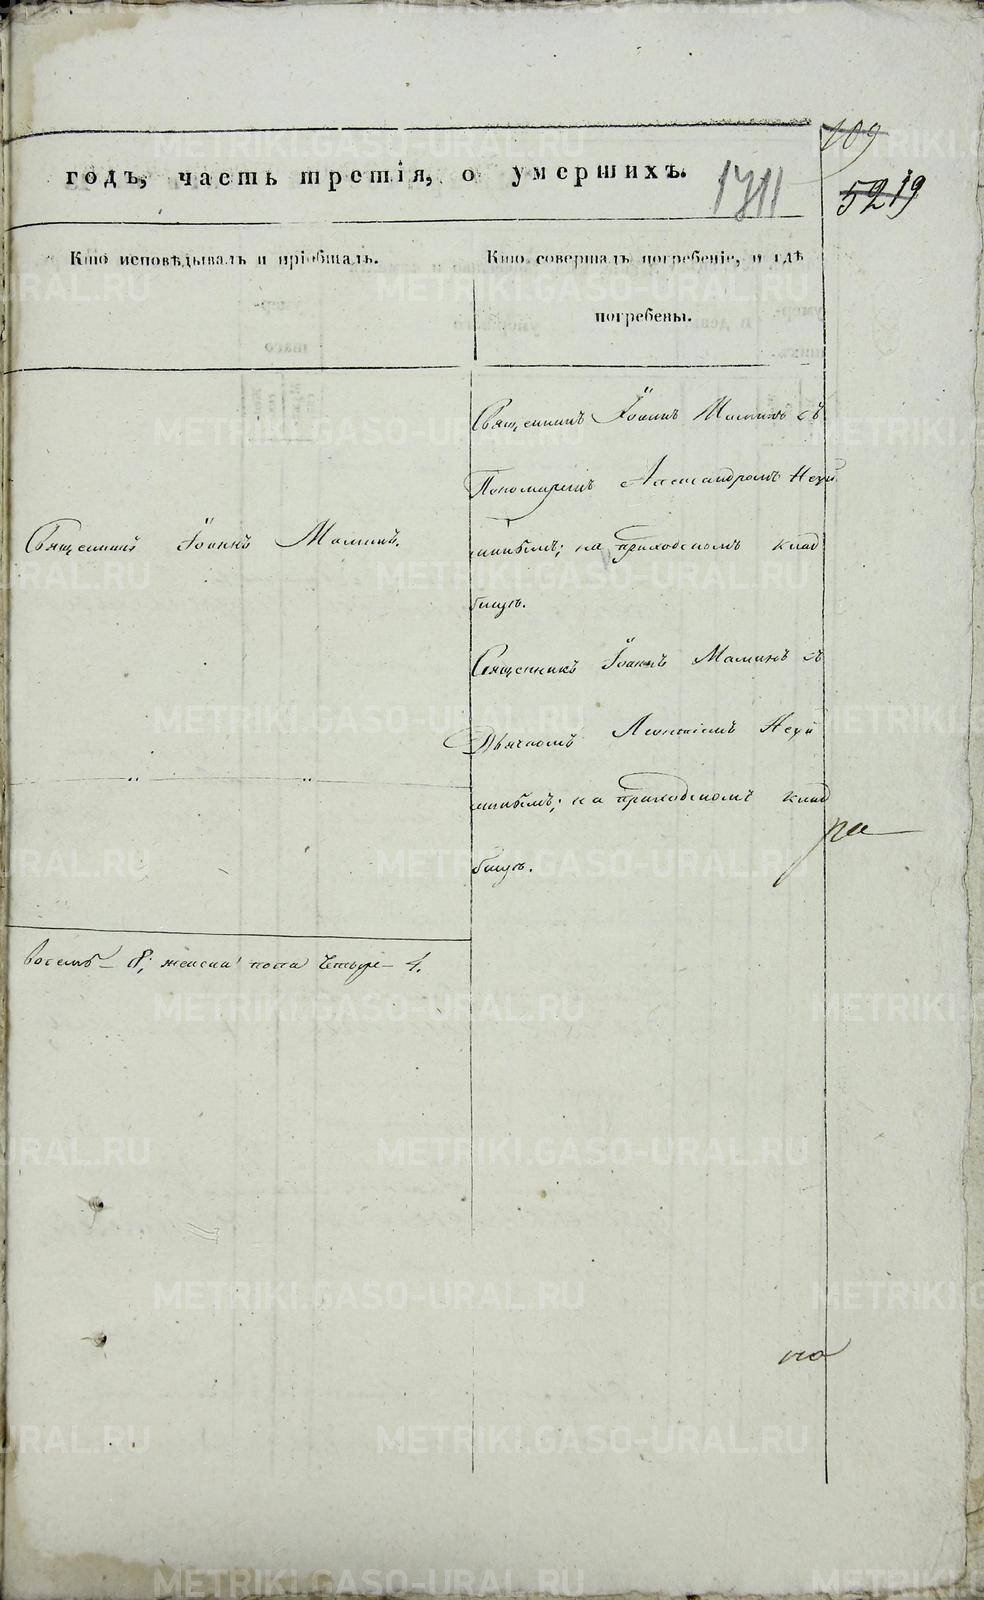 109
годъ, часть третія, о умершихъ.
1711
5219
Кто исповѣдывалъ и пріобщалъ.
Кто совершалъ погребеніе, и гдѣ
погребены.
Священникъ Іоаннъ Маминъ.
Священникъ Іоаннъ Маминъ съ
Пономаремъ Александромъ
на приходскомъ клад
бищѣ.
Священникъ Іоаннъ Маминъ съ
Дьячкомъ Леонтіемъ
на приходскомъ клад
бищѣ.
" "
восемь – 8; женска пола четыре – 4.
METRIKI.GASO-URAL.RU